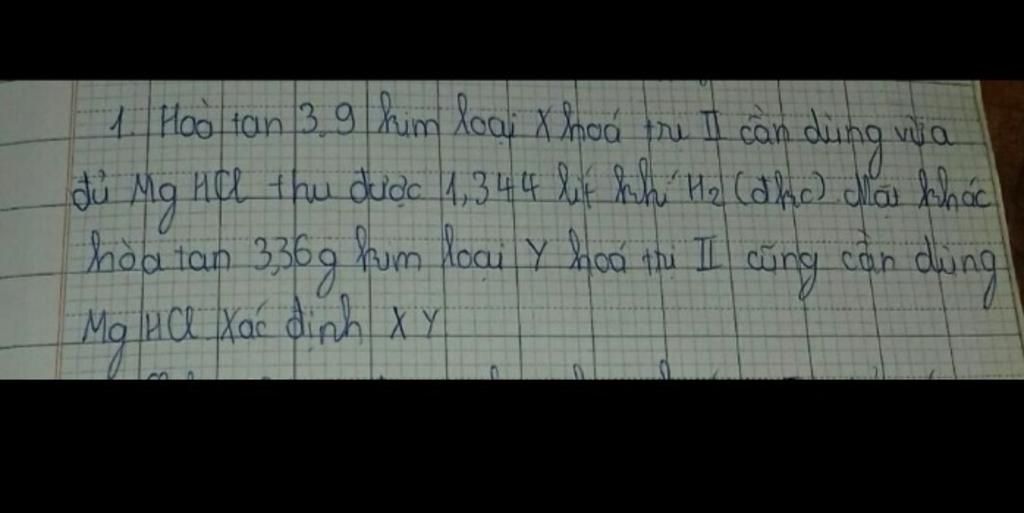 1. Hoò tan 3,9 kim loại X hoá trị II cần dùng vừa
đủ Mg HCl thu được 1,344 lít khí H2 (đktc) Mặt khác
hòa tan 3,36g kim loại Y hoá trị II cũng cần dùng
Mg HCl Xác định X Y